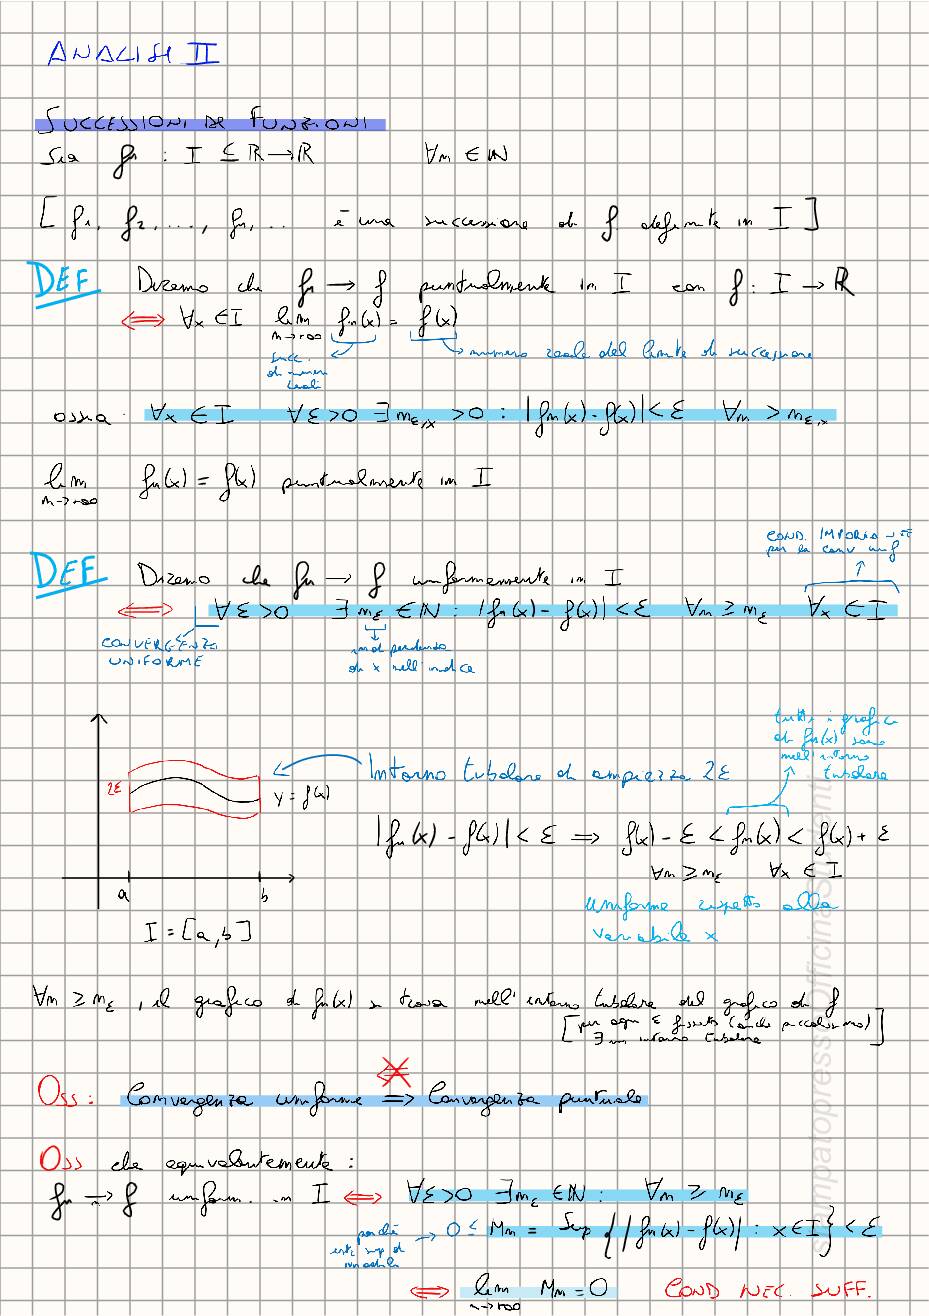 ANALISI II
SUCCESSIONI DI FUNZIONI
Sia fn : I ⊆ ℝ → ℝ ∀n ∈ ℕ
[ f1, f2, ..., fn, ... è una successione di f definite in I ]
DEF Diremo che fn → f puntualmente in I con f : I → ℝ
⟺ ∀x ∈ I lim n→+∞ fn(x) = f(x)
succ. di numeri reali
numero reale del limite di successione
ossia ∀x ∈ I ∀ε>0 ∃ nε,x > 0 : |fn(x) - f(x)| < ε ∀n > nε,x
lim n→+∞ fn(x) = f(x) puntualmente in I
per la conv unif
DEF Diremo che fn → f uniformemente in I
⟺ ∀ε>0 ∃ nε ∈ ℕ : |fn(x) - f(x)| < ε ∀n ≥ nε ∀x ∈ I
CONVERGENZA UNIFORME
indipendente di x nell'indice
tutti i grafici di fn(x) sono nell'intorno tubolare
Intorno tubolare di ampiezza 2ε
2ε
y = f(x)
|fn(x) - f(x)| < ε ⟹ f(x) - ε < fn(x) < f(x) + ε
∀n ≥ nε ∀x ∈ I
a b
uniforme rispetto alla variabile x
I = [a, b]
∀n ≥ nε, il grafico di fn(x) si trova nell'intorno tubolare del grafico di f
[per ogni ε fissato (anche piccolissimo) ∃ un intorno tubolare]
Oss: Convergenza uniforme ⟹ Convergenza puntuale
Oss che equivalentemente :
fn → f uniform. in I ⟺ ∀ε>0 ∃ nε ∈ ℕ : ∀n ≥ nε
perché est. sup di
→ 0 ≤ Mn = Sup { |fn(x) - f(x)| : x ∈ I } < ε
⟺ lim n→+∞ Mn = 0 COND NEC. SUFF.
stampatopressoOfficinaStudenti